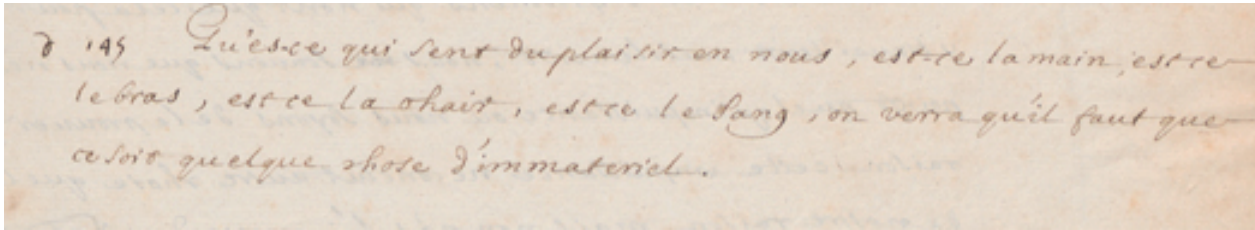 d 145 Qu'es-ce qui sent du plaisir en nous, est-ce la main, est ce
le bras, est ce la chair, est ce le sang, on verra qu'il faut que
ce soit quelque chose d'immateriel.